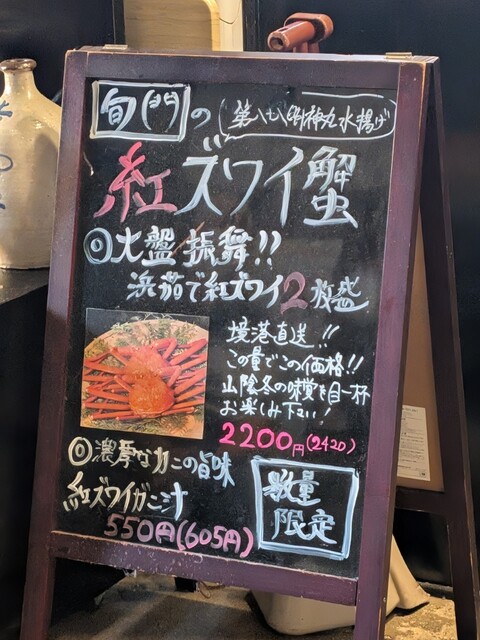 旬門の
第八八明神丸水揚げ
紅ズワイ蟹
◎大盤振舞!!
浜茹で紅ズワイ2枚盛
境港直送!!
この量でこの価格!!
山陰冬の味覚を目一杯
お楽しみ下さい!
2200円(2420)
◎濃厚なカニの旨味
紅ズワイガニ汁
550円(605円)
数量
限定